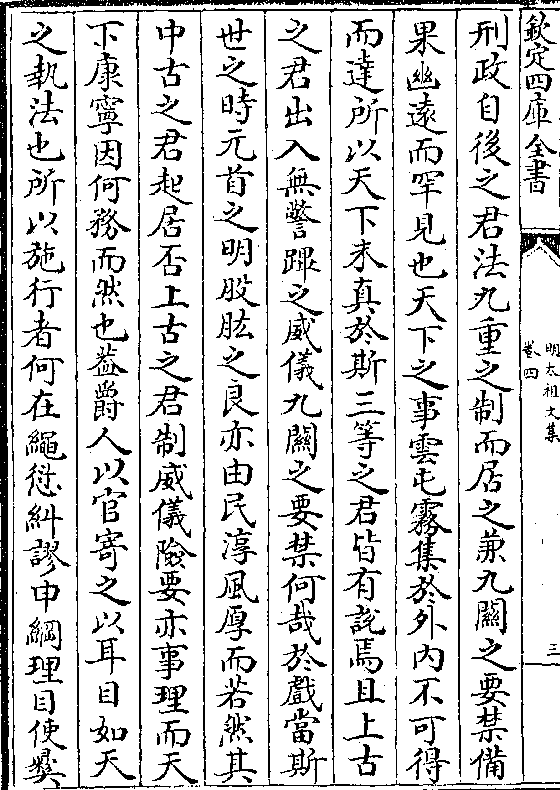 欽定四庫全書
明太祖文集
卷四
三
刑政自後之君法九重之制而居之兼九關之要禁備
果幽遠而罕見也天下之事雲屯霧集於外内不可得
而達所以天下未真於斯三等之君皆有說焉且上古
之君出入無警蹕之威儀九關之要禁何哉於戲當斯
世之時元首之明股肱之良亦由民淳風厚而若然其
中古之君起居否上古之君制威儀險要亦事理而天
下康寧因何務而然也葢爵人以官寄之以耳目如天
之執法也所以施行者何在繩愆糾謬申綱理目使彛